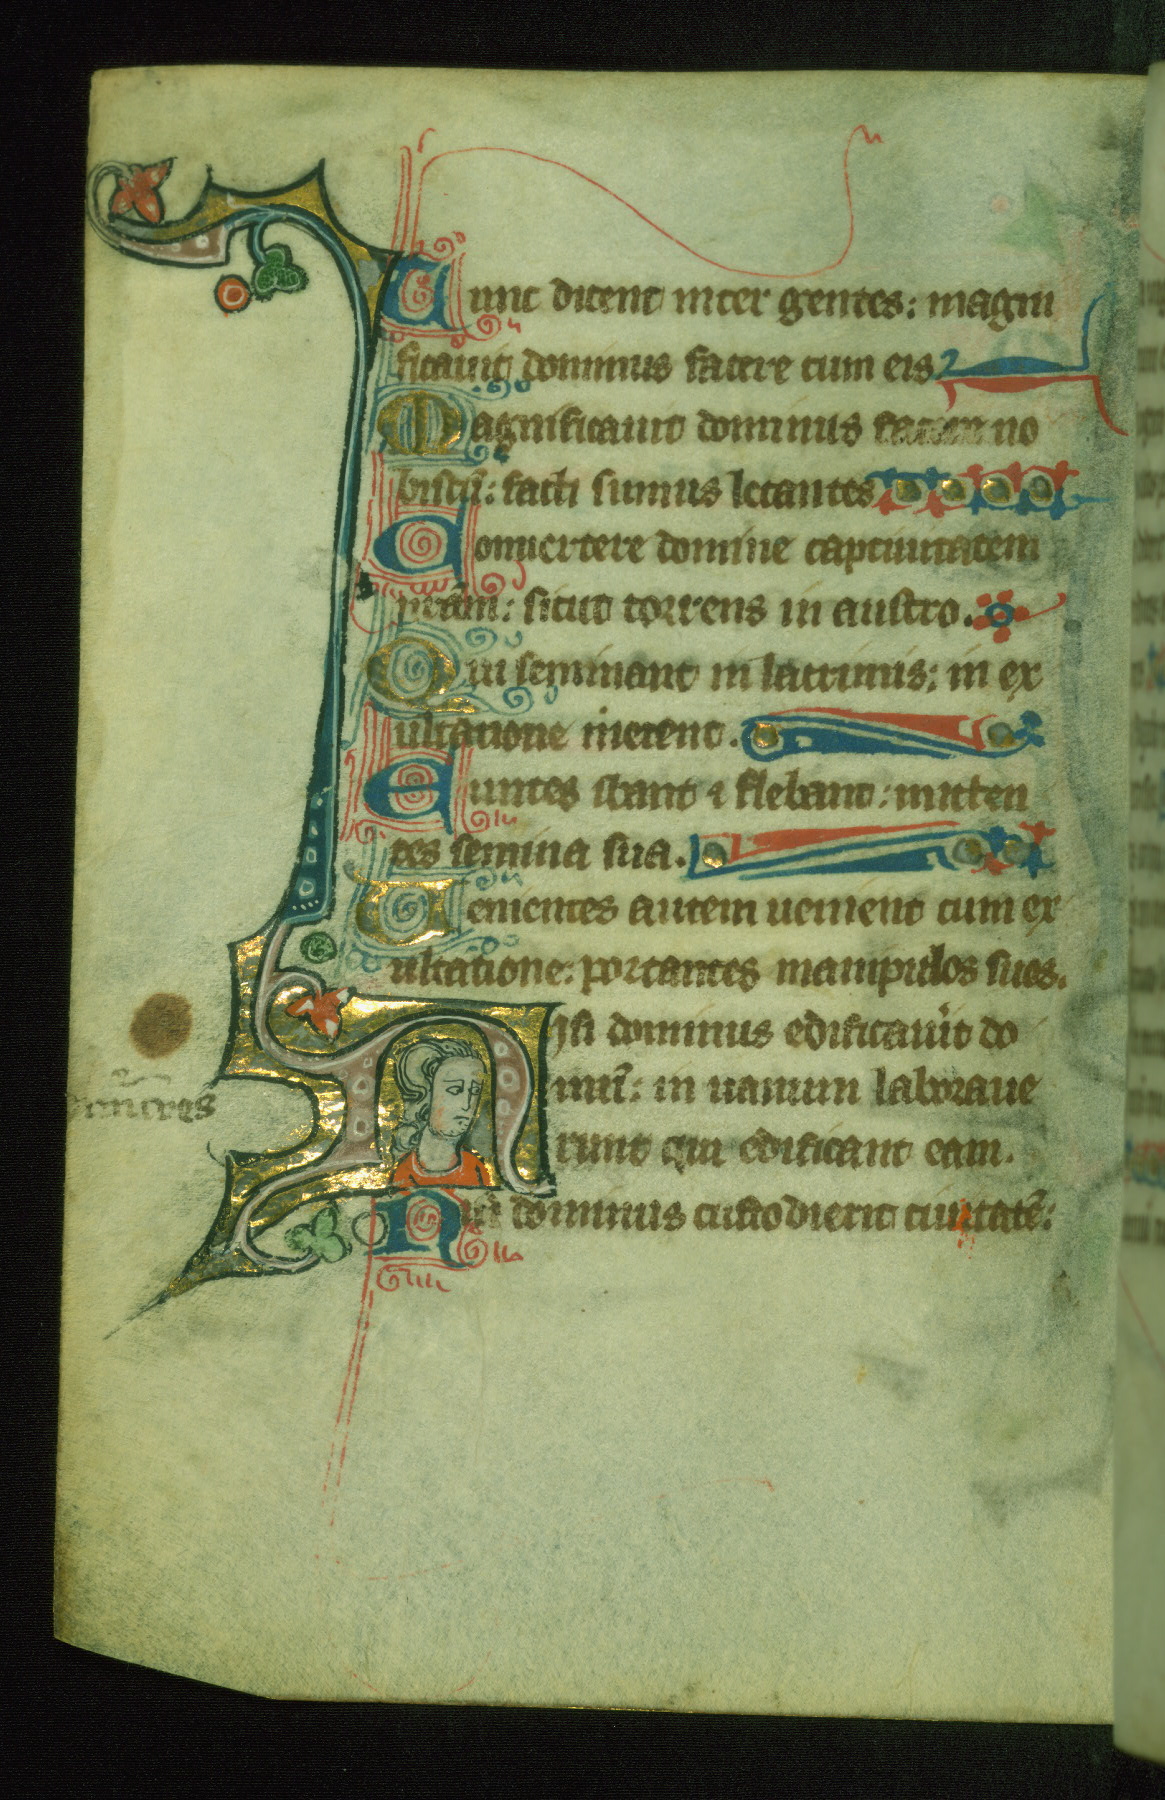 Tunc dicent inter gentes: magni
ficauit dominus facere cum eis
Magnificauit dominus facere no
biscū: facti sumus letantes
Conuertere domine captiuitatem
nr̄am: sicut torrens in austro.
Qui seminant in lacrimis: in ex
ultatione metent.
Euntes ibant ⁊ flebant: mitten
tes semina sua.
Uenientes autem uenient cum ex
ultatione: portantes manipulos suos.
Nisi dominus edificauit do
mū: in uanum laboraue
runt qui edificant eam.
Nisi dominus custodierit ciuitatē: